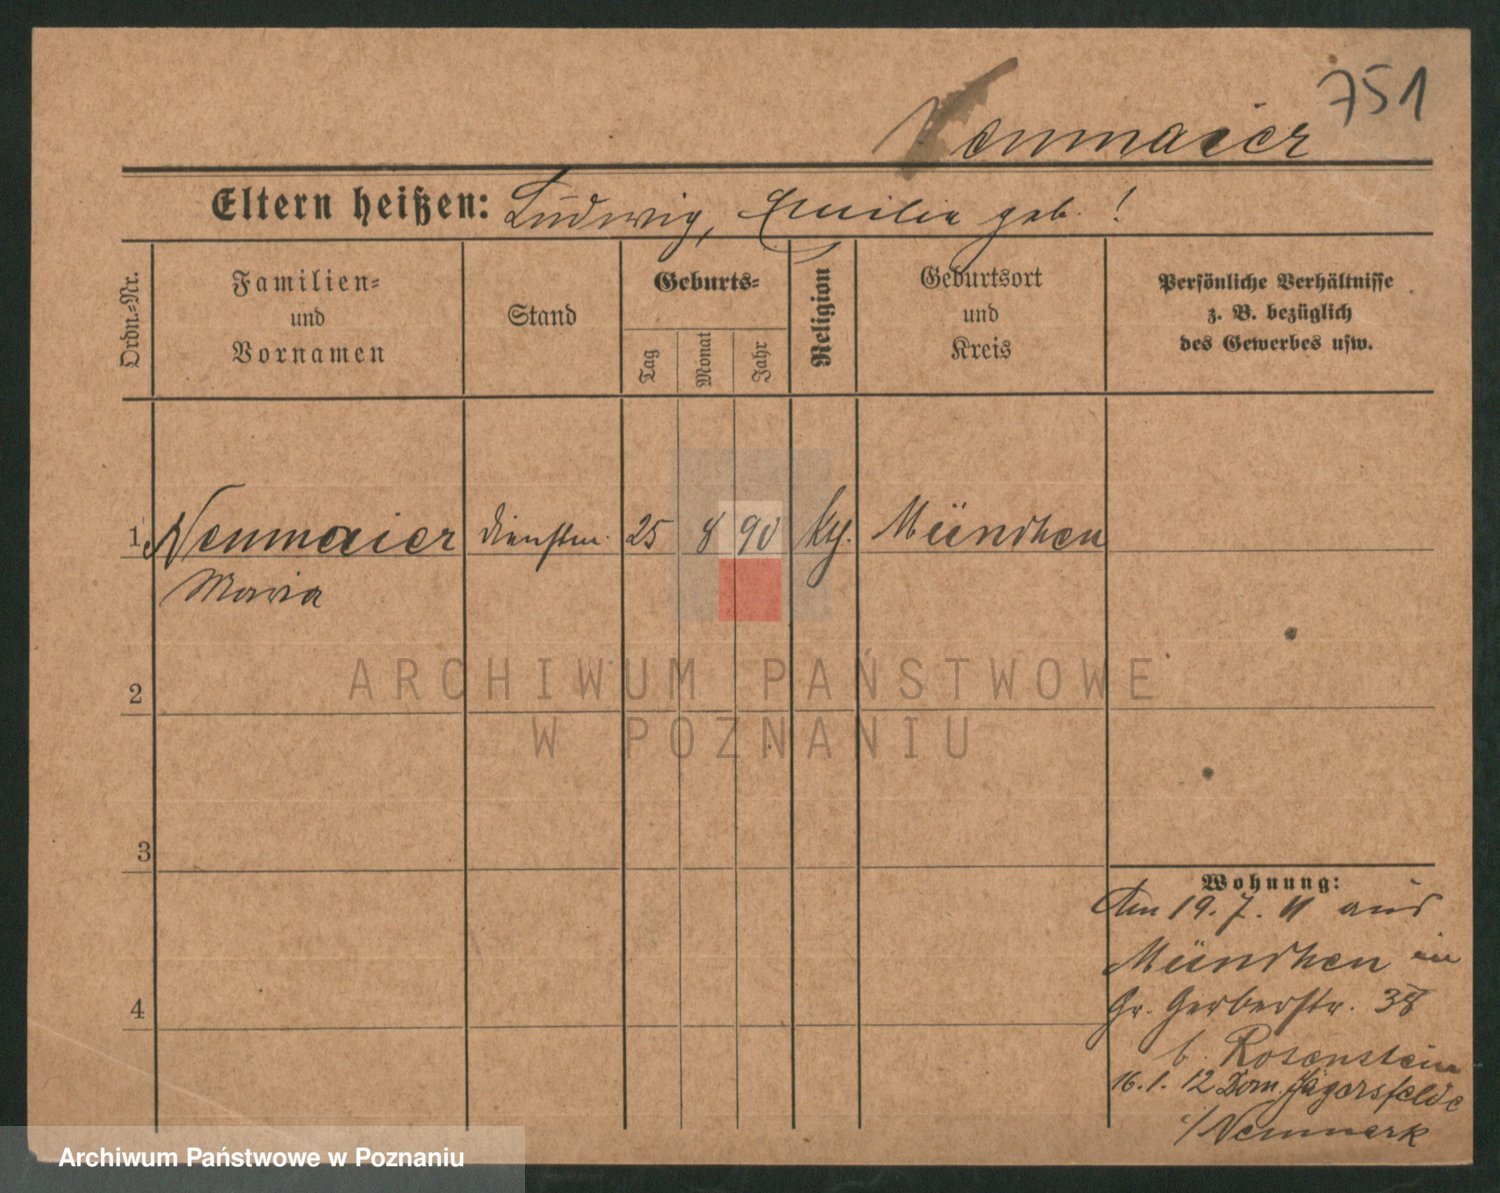 751
Neumaier
Eltern heißen: Ludwig, Emilie geb. !
Ordn.=Nr.
Familien=
und
Vornamen
Stand
Geburts=
Tag
Monat
Jahr
Religion
Geburtsort
und
Kreis
Persönliche Verhältnisse
z. B. bezüglich
des Gewerbes usw.
1 Neumaier Dienstm. 25 8 90 kth. München
Maria
2
3
4
Wohnung:
Am 19. 7. 11 aus
München in
Gr. Gerberstr. 38
b. Rosenstein
16. 1. 12 Dom. Jägersfelde
i/Neumark
ARCHIWUM PAŃSTWOWE
W POZNANIU
Archiwum Państwowe w Poznaniu